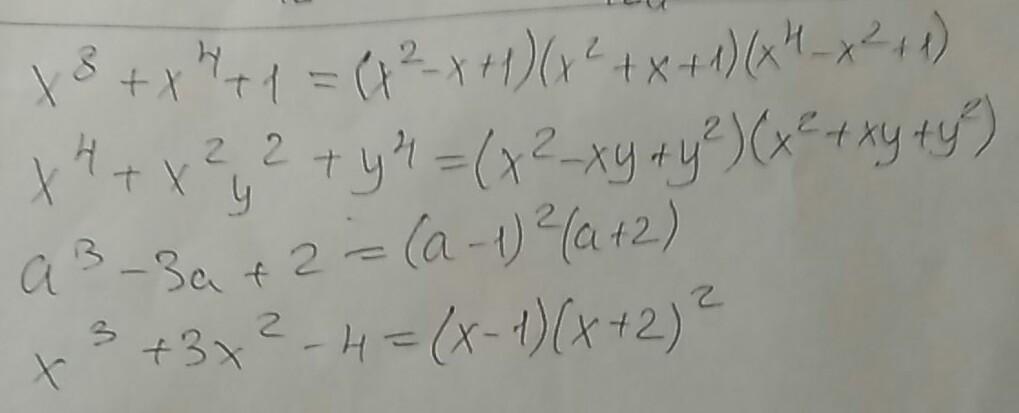 x⁸ + x⁴ + 1 = (x² - x + 1)(x² + x + 1)(x⁴ - x² + 1)
x⁴ + x²y² + y⁴ = (x² - xy + y²)(x² + xy + y²)
a³ - 3a + 2 = (a - 1)²(a + 2)
x³ + 3x² - 4 = (x - 1)(x + 2)²